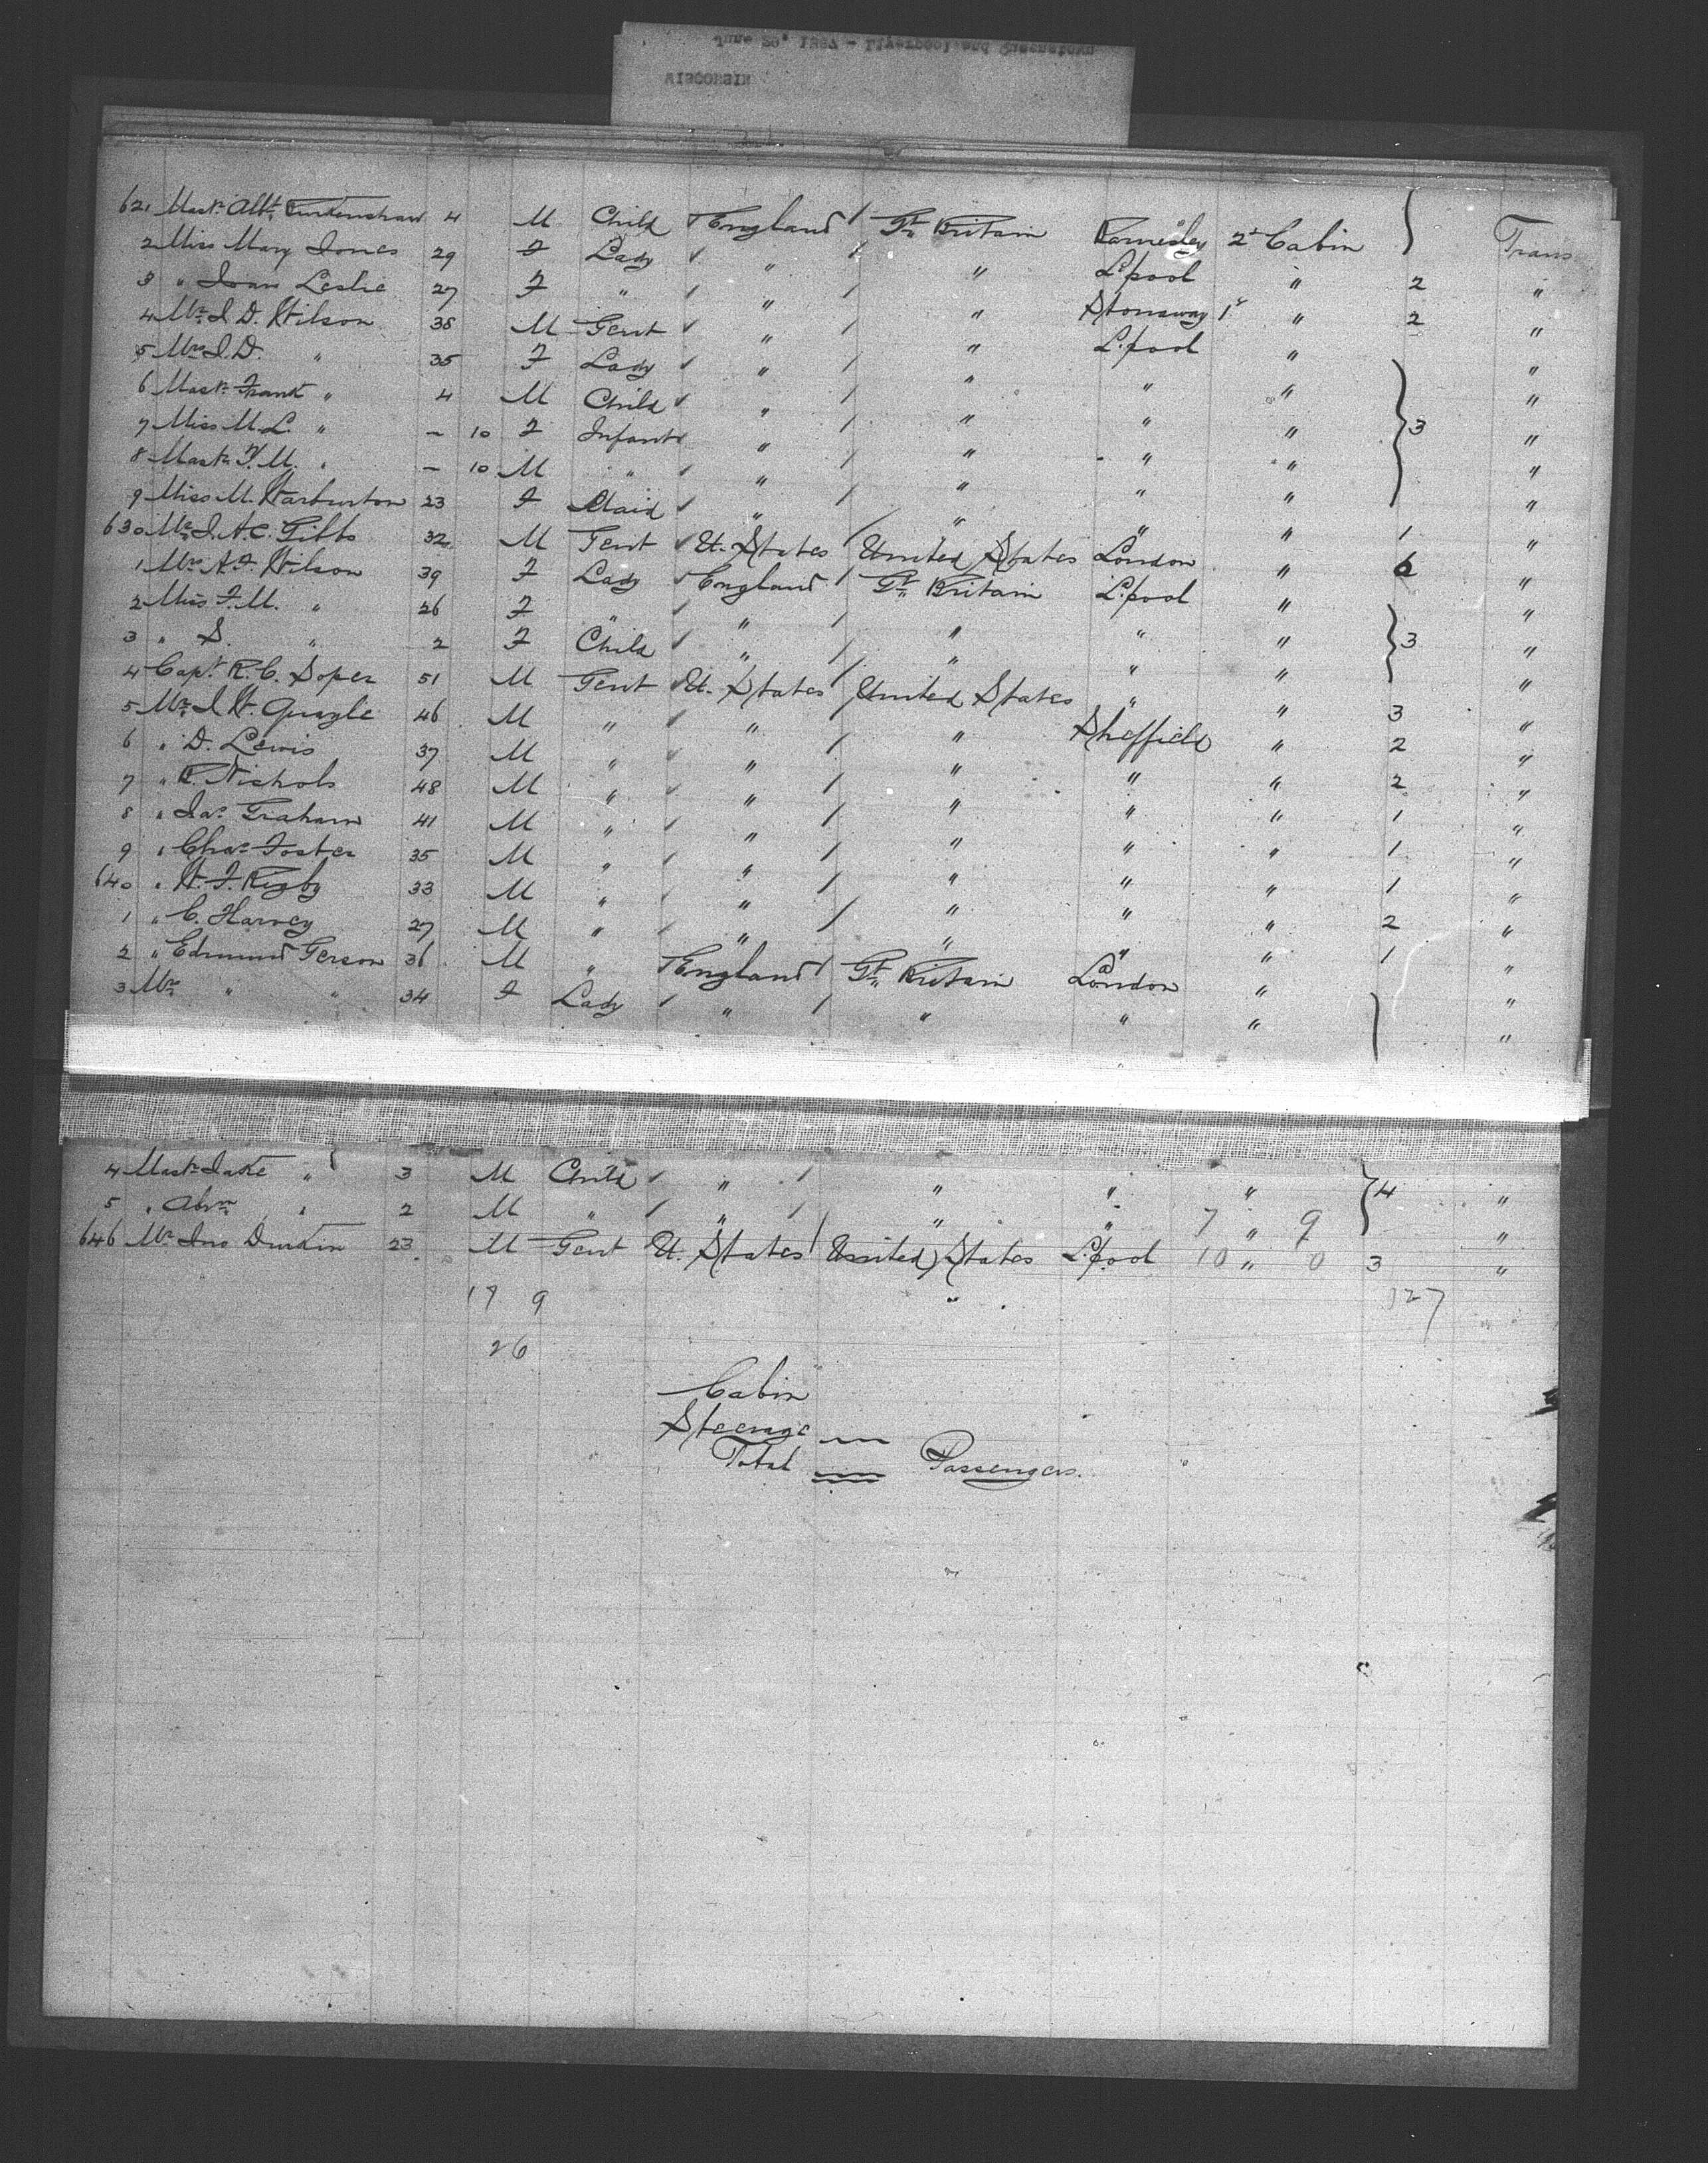 June 20, 1887 - Liverpool and Queenstown
WISCONSIN
621 Mastr Albt 4 M Child England / Gt Britain Barnsley 2d Cabin Trans
2 Miss Mary Jones 29 F Lady " " L'pool " 2 "
3 " Leslie 27 F " " " Stornoway 1st " 2 "
4 Mr J. D. Wilson 38 M Gent " " L'pool " "
5 Mrs J. D. " 35 F Lady " " " " "
6 Mastr Frank " 4 M Child " " " " 3 "
7 Miss M. L. " - 10 F Infant " " " " "
8 Mastr F. M. " - 10 M " " " " " "
9 Miss M. Warburton 23 F Maid " " " " 1 "
630 Mr J. A. C. Gibbs 32 M Gent U. States / United States London " 6 "
1 Mrs A. F. Wilson 39 F Lady England / Gt Britain L'pool " "
2 Miss F. M. " 26 F " " " " " 3 "
3 " S. " 2 F Child " " " " "
4 Capt R. C. Soper 51 M Gent U. States / United States " " 3 "
5 Mr J. W. Quayle 46 M " " " Sheffield " 2 "
6 " D. Lewis 37 M " " " " " 2 "
7 " R. Nichols 48 M " " " " " 1 "
8 " Jas Graham 41 M " " " " " 1 "
9 " Chas Foster 35 M " " " " " 1 "
640 " W. F. Rigby 33 M " " " " " 2 "
1 " C. Harvey 27 M " " " " " 1 "
2 " Edmund Gerson 36 M " England / Gt Britain London " "
3 Mrs " " 34 F Lady " " " " "
4 Mastr Jake " 3 M Child " " " " 4 "
5 " Abrm " 2 M " " " " 7 " 9 "
646 Mr Jno Durkin 23 M Gent U. States / United States L'pool 10 " 0 3 "
17 9 127
26
Cabin
Steerage
Total Passengers.